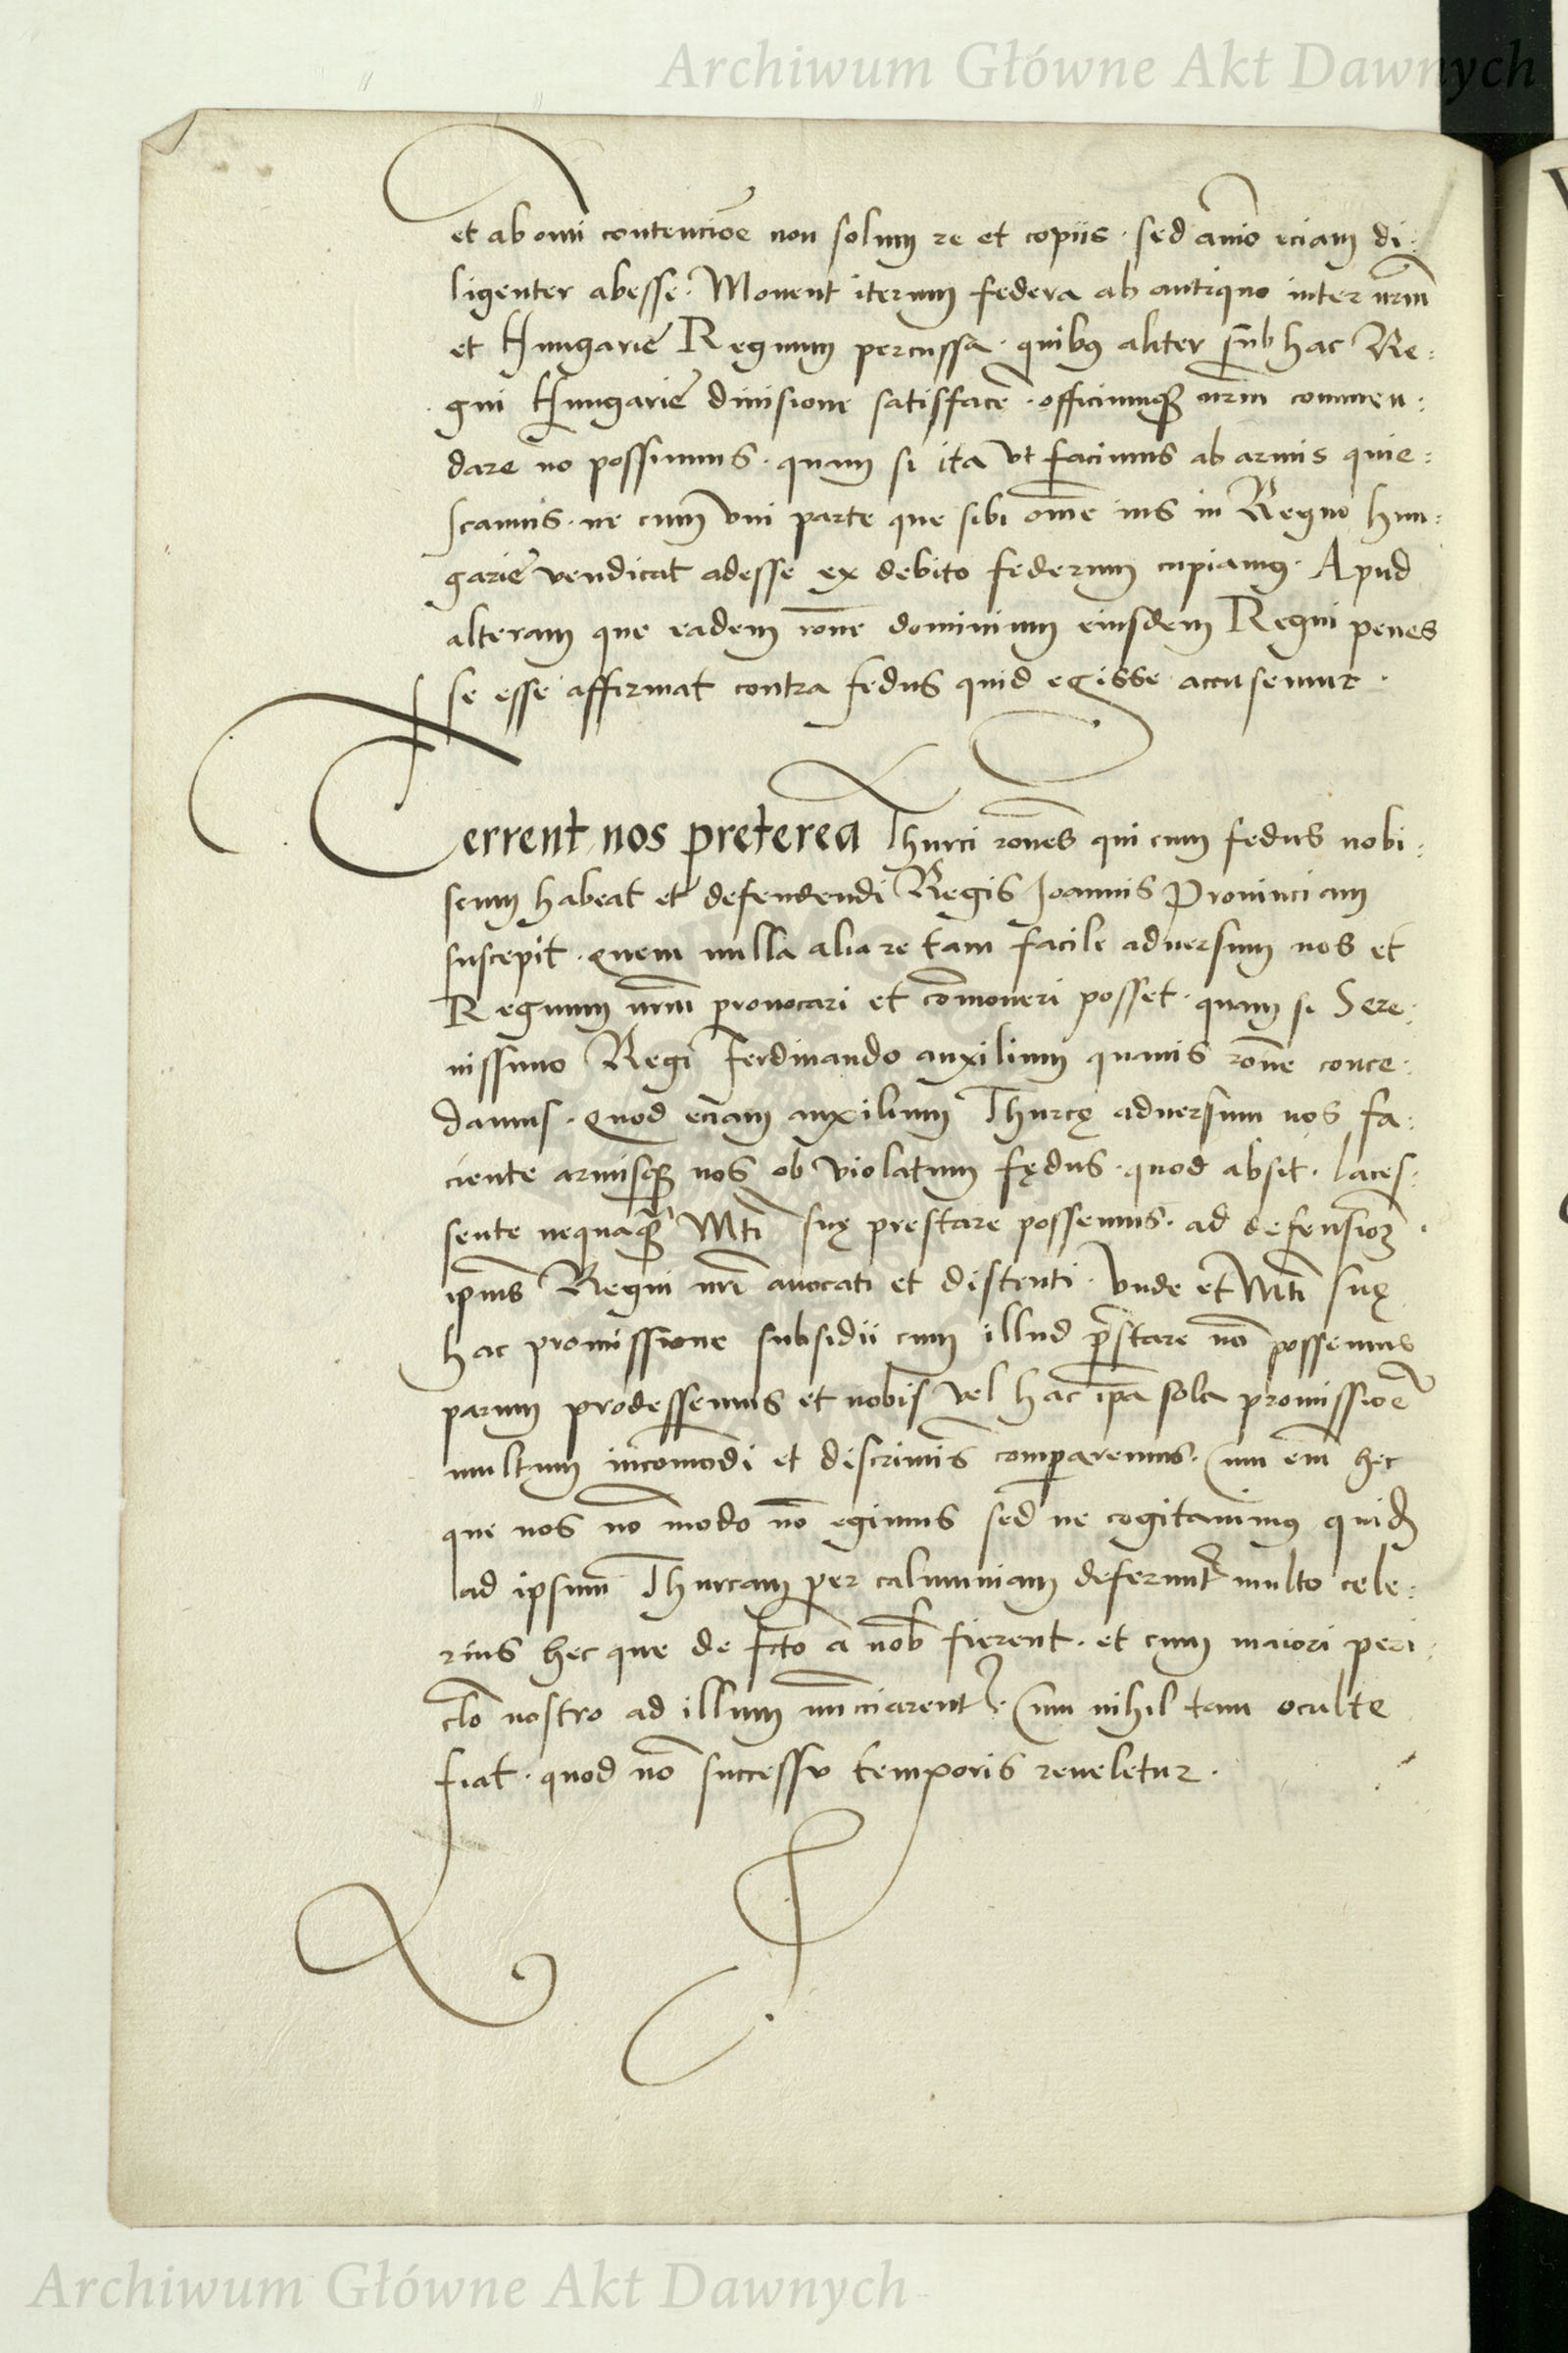 Archiwum Główne Akt Dawnych
et ab omi contencioe non solum re et copiis · sed amo eciam di:
ligenter abesse · Monent iterum federa ab antiquo inter nrm
et Hungarie Regnum percussa · quibus aliter sub hac Re:
gni Hungarie diuisione satisface · officiumque nrm commen:
dare no possumus · quam si ita vt facimus ab armis quie:
scamus · ne cum vni parte que sibi ome ius in Regno Hun:
garie vendicat adesse ex debito federum cupiamus · Apud
alteram que eadem rone dominium eiusdem Regni penes
se esse affirmat contra fedus quid egisse accusemur ·
Terrent nos preterea Thurci rones qui cum fedus nobi:
scum habeat et defendendi Regis Joannis Prouinciam
suscepit · Quem nulla alia re tam facile aduersum nos et
Regnum nrm prouocari et comoueri posset · quam si Sere:
nissimo Regi Ferdinando auxilium quauis rone conce:
damus · Quod eciam auxilium Thurcę aduersum nos fa:
ciente armisque nos ob violatum fędus · quod absit · laces:
sente nequaquam Mti suę prestare possemus · ad defensioem
ipius Regni nri auocati et distenti · Vnde et Mti suę
hac promissione subsidii cum illud prestare no possemus
parum prodessemus et nobis vel hac ipa sola promissioe
multum incomodi et discriminis compararemus · Cum eni hec
que nos no modo no egimus sed ne cogitauimus quidem
ad ipsum Thurcam per calumniam deferuntur multo cele:
rius hec que de fcto a nob fierent · et cum maiori peri:
clo nostro ad illum nunciarentur · Cum nihil tam oculte
fiat · quod no successu temporis reueletur ·
Archiwum Główne Akt Dawnych